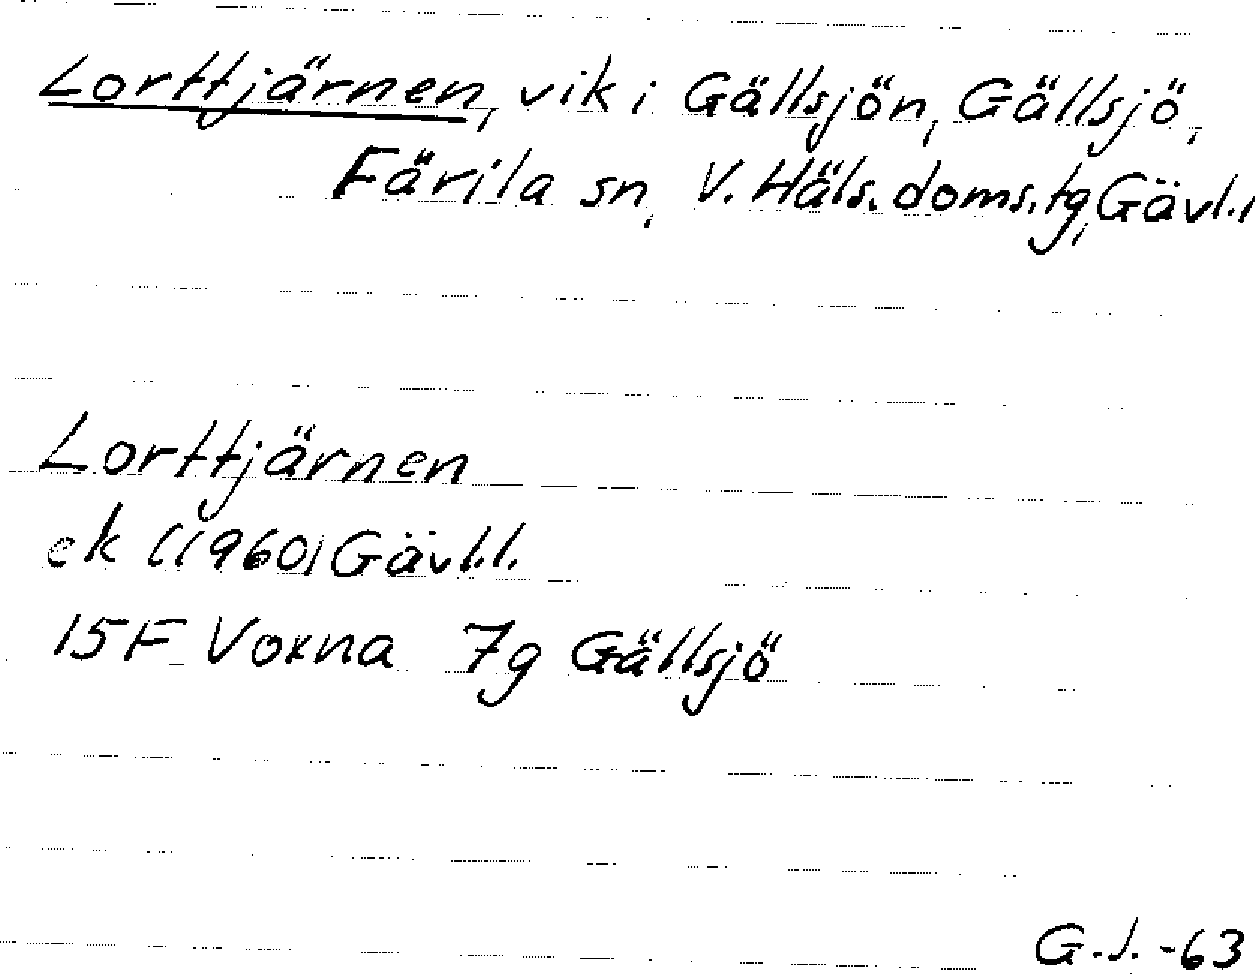 Lorttjärnen, vik i Gällsjön, Gällsjö,
Färila sn, V. Häls. doms.tg, Gävl.l
Lorttjärnen
ek (1960) Gävl.l.
15F Voxna 7g Gällsjö
G.J. -63